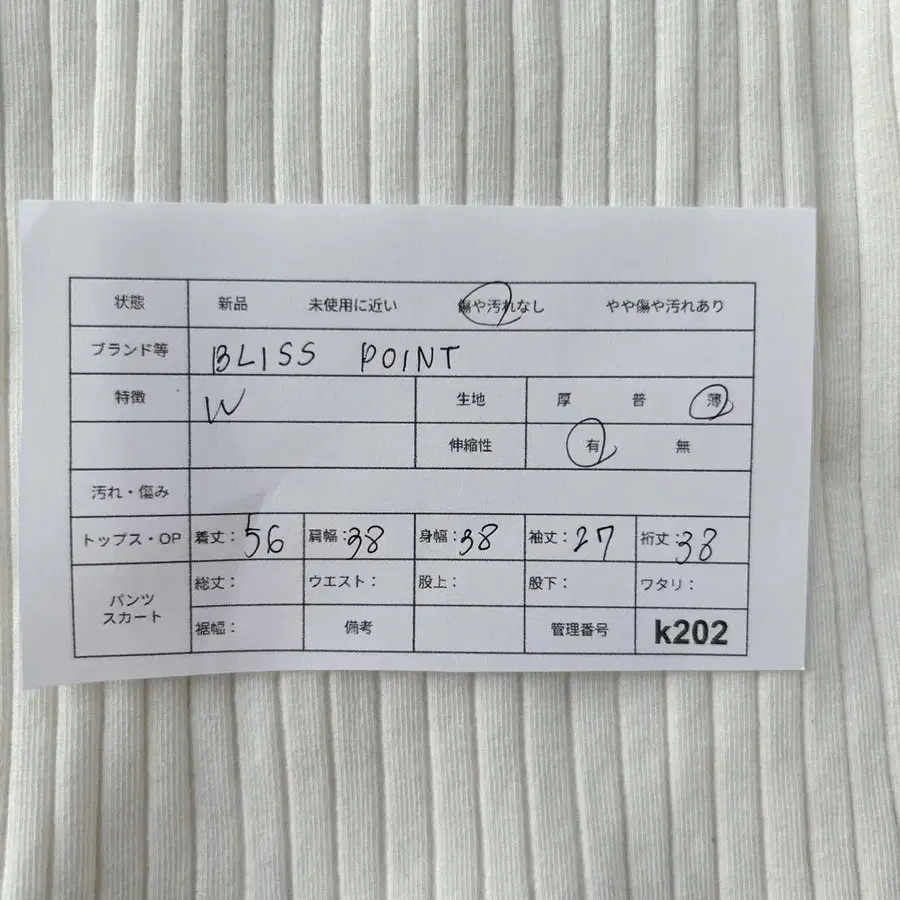 状態 新品 未使用に近い 傷や汚れなし やや傷や汚れあり
ブランド等 BLISS POINT
特徴 W 生地 厚 普 薄
伸縮性 有 無
汚れ・傷み
トップス・OP 着丈：56 肩幅：38 身幅：38 袖丈：27 裄丈：38
パンツ スカート 総丈： ウエスト： 股上： 股下： ワタリ：
裾幅： 備考 管理番号 k202